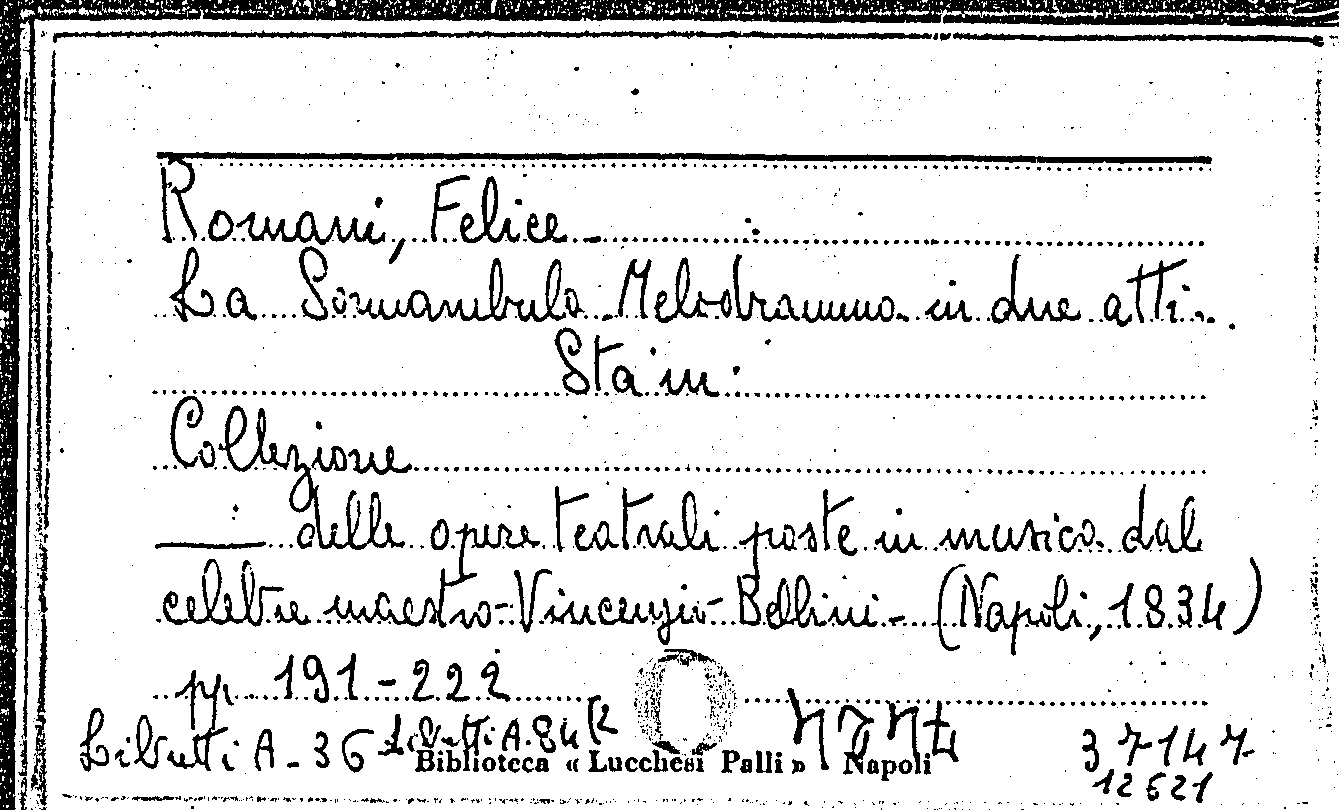 Romani, Felice -
La Sonnambula. Melodramma in due atti.
Sta in:
Collezione
— delle opere teatrali poste in musica dal
celebre maestro - Vincenzio - Bellini - (Napoli, 1834)
pp. 191-222
Libretti A-36 - Libretti A.84
Biblioteca « Lucchesi Palli » - Napoli
37147
12621